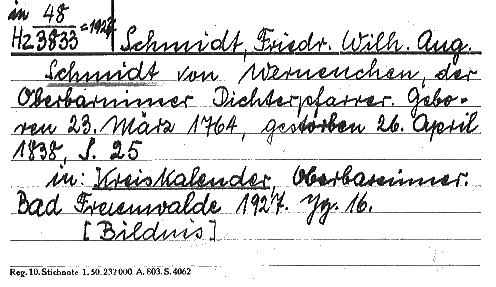 in 48
Hz 3833 = 1927 Schmidt, Friedr. Wilh. Aug.
Schmidt von Werneuchen, der
Oberbarnimer Dichterpfarrer. Gebo-
ren 23. März 1764, gestorben 26. April
1838 S. 25
in: Kreiskalender, Oberbarnimer.
Bad Freienwalde 1927. Jg. 16.
[Bildnis]
Reg. 10. Stichnote 1. 50. 232 000. A. 803. S. 4062